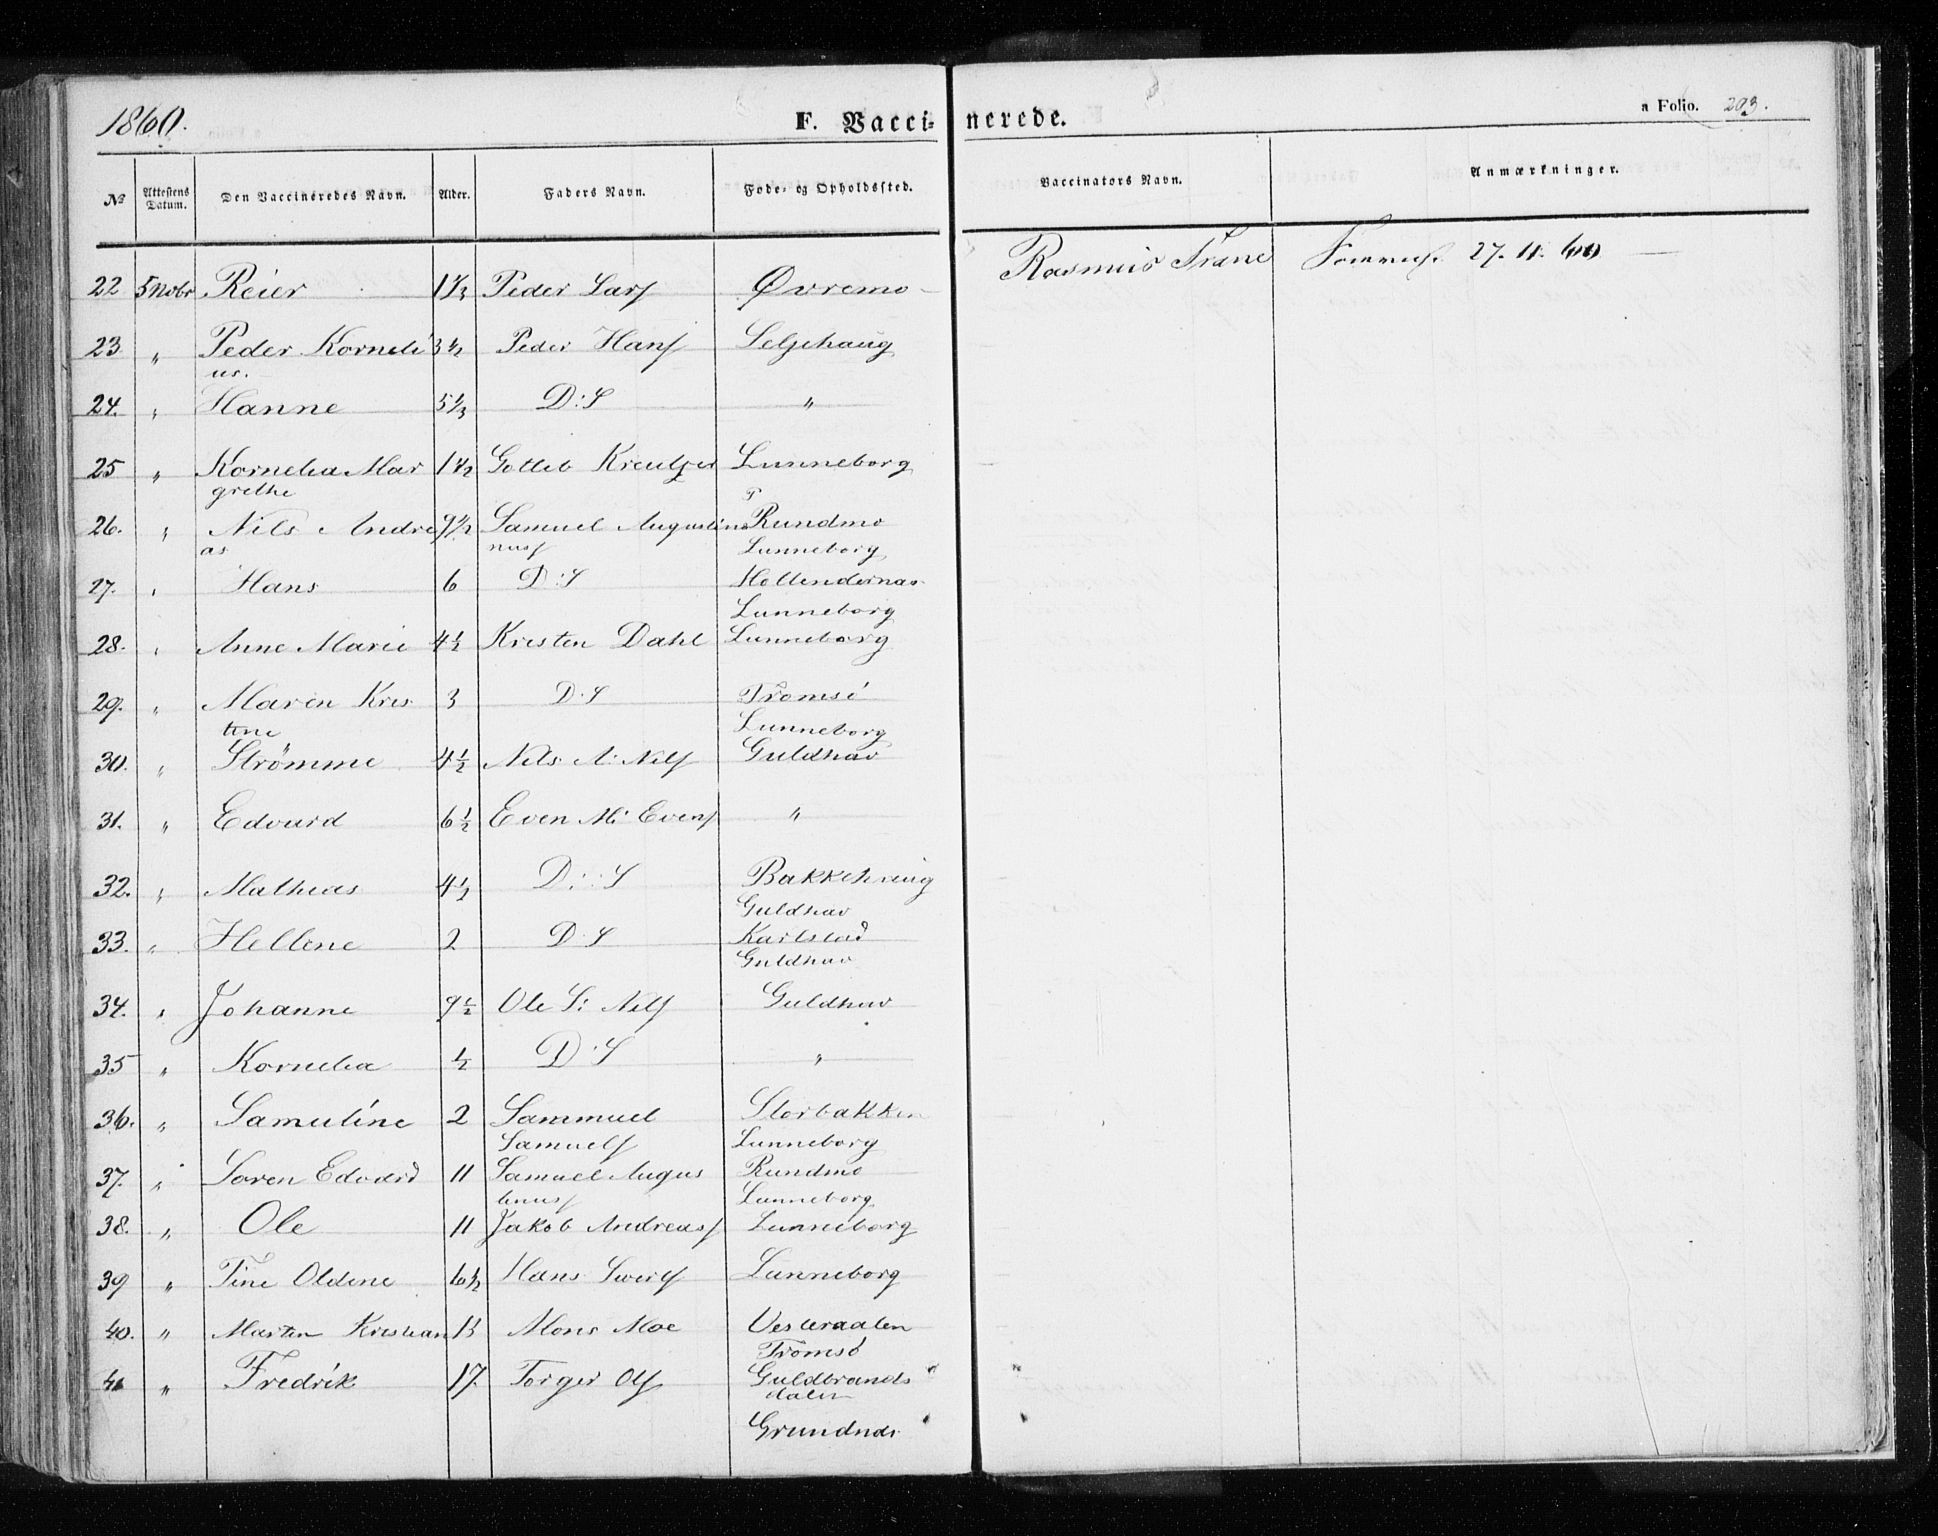 1860.
F. Vaccinerede.
a Folio. 203.
No
Attestens Datum.
Den Vaccineredes Navn.
Alder.
Faders Navn.
Føde- og Opholdssted.
Vaccinators Navn.
Anmærkninger.
22 5 Novbr Reier 1 1/3 Peder Lars Øvremo Rasmus Trane 27.11.60
23 " Peder Korneli 3 1/2 Peder Hans Seljehaug
us.
24. " Hanne 5 1/3 D:S "
25 " Kornelia Mar 1 1/2 Gotleb Kreutzer Lunneborg
grethe
26. " Nils Andre 9 1/2 Samuel Augustinus Rundmo
as nuss Lunneborg
27. " Hans 6 D:S Hollendernæs
Lunneborg
28. " Anne Marie 4 1/2 Kristen Dahl Lunneborg
29. " Maren Kris 3 D:S Tromsö
tine Lunneborg
30. " Strømme 4 1/2 Nils A: Nils Guldhav
31. " Edvard 6 1/2 Even M: Evens "
32. " Mathias 4 1/2 D:S Bakkehaug
Guldhav
33. " Hellene 2 D:S Karlstad
Guldhav
34. " Johanne 9 1/2 Ole S: Nils Guldhav
35 " Kornelia 1/2 D:S "
36. " Samuline 2 Sammuel Storbakken
Samuels Lunneborg
37. " Søren Edvard 11 Samuel Augus Rundmo
tinus Lunneborg
38. " Ole 11 Jakob Andreas Lunneborg
39 " Tine Oldine 6 1/2 Hans Lunneborg
40. " Marten Kristian Mons Moe Vesteraalen
Tromsö
41 " Fredrik 17. Torger Ols Guldbrands
dalen
Grundnds